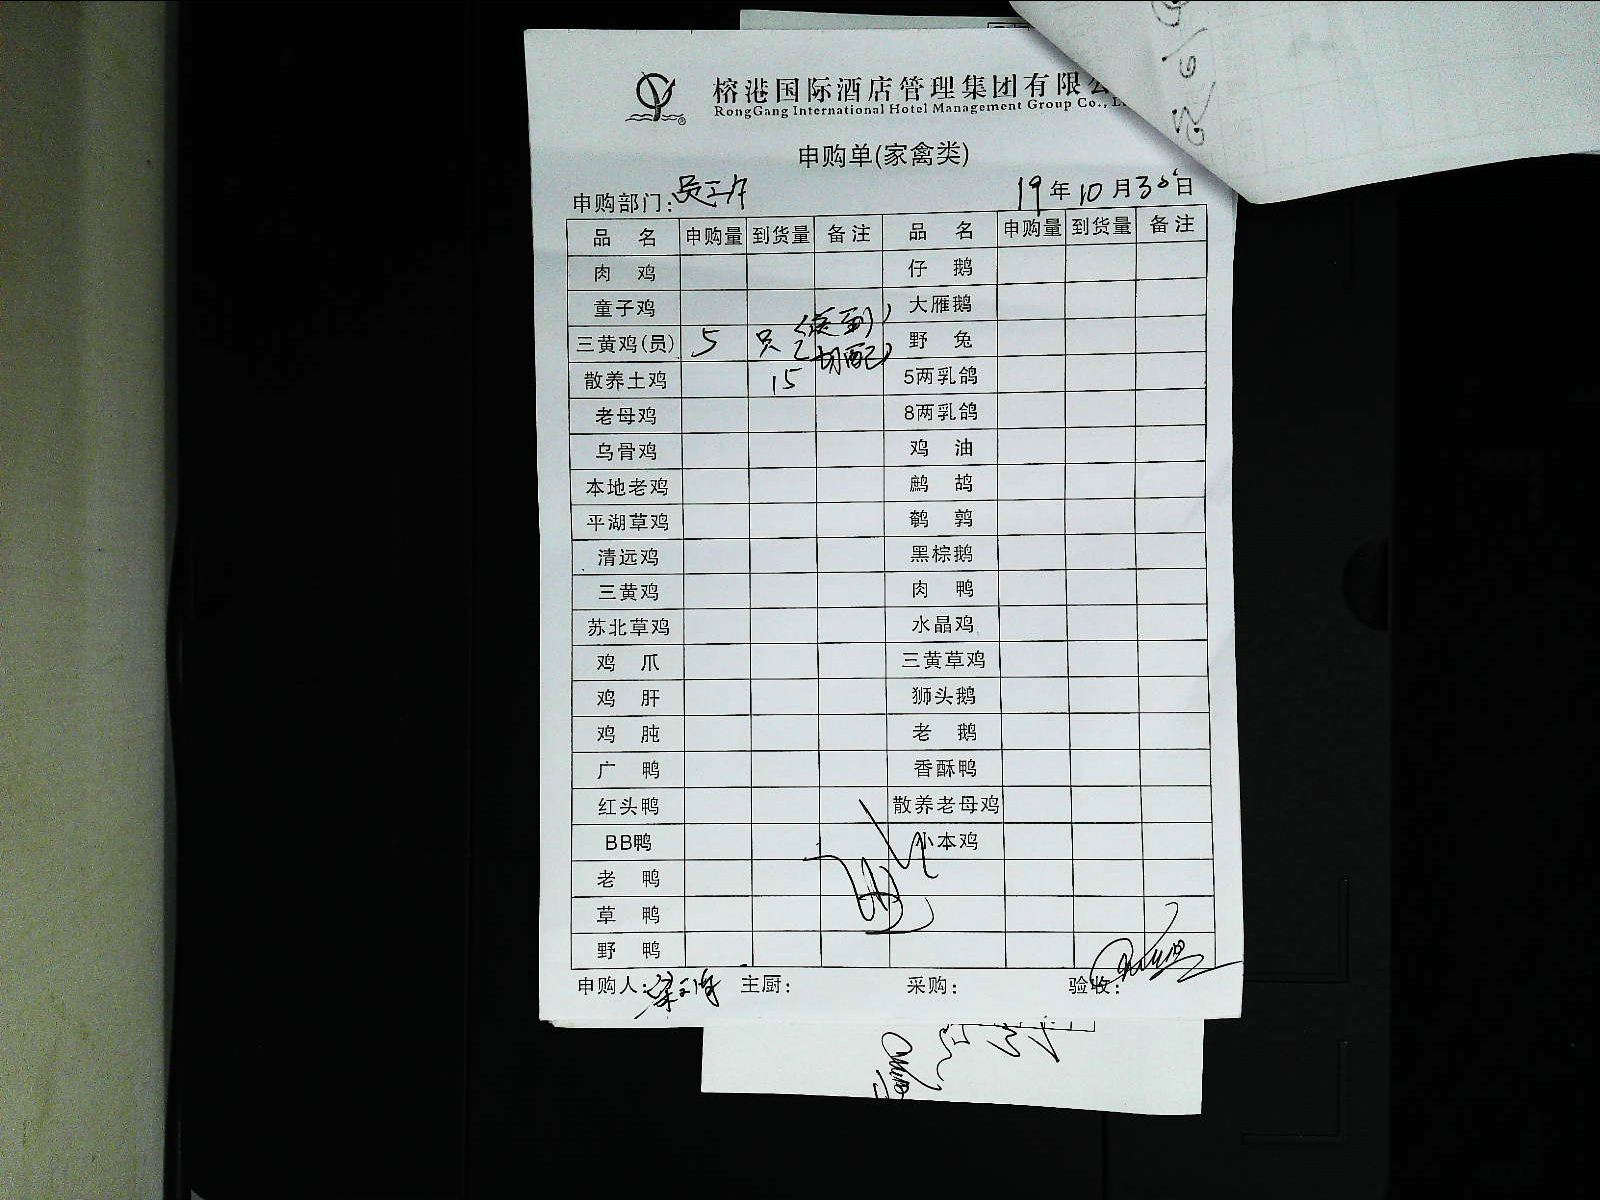 榕港国际酒店管理集团有限公
RongGang International Hotel Management Group Co., L
申购单(家禽类)
申购部门: 19年10月30日
品 名 申购量 到货量 备注 品 名 申购量 到货量 备注
肉 鸡 仔 鹅
童子鸡 大雁鹅
三黄鸡(员) 5 只 (送到 切配) 野 兔
散养土鸡 15 5两乳鸽
老母鸡 8两乳鸽
乌骨鸡 鸡 油
本地老鸡 鹧 鸪
平湖草鸡 鹌 鹑
清远鸡 黑棕鹅
三黄鸡 肉 鸭
苏北草鸡 水晶鸡
鸡 爪 三黄草鸡
鸡 肝 狮头鹅
鸡 肫 老 鹅
广 鸭 香酥鸭
红头鸭 散养老母鸡
BB鸭 小本鸡
老 鸭
草 鸭
野 鸭
申购人: 主厨: 采购: 验收: